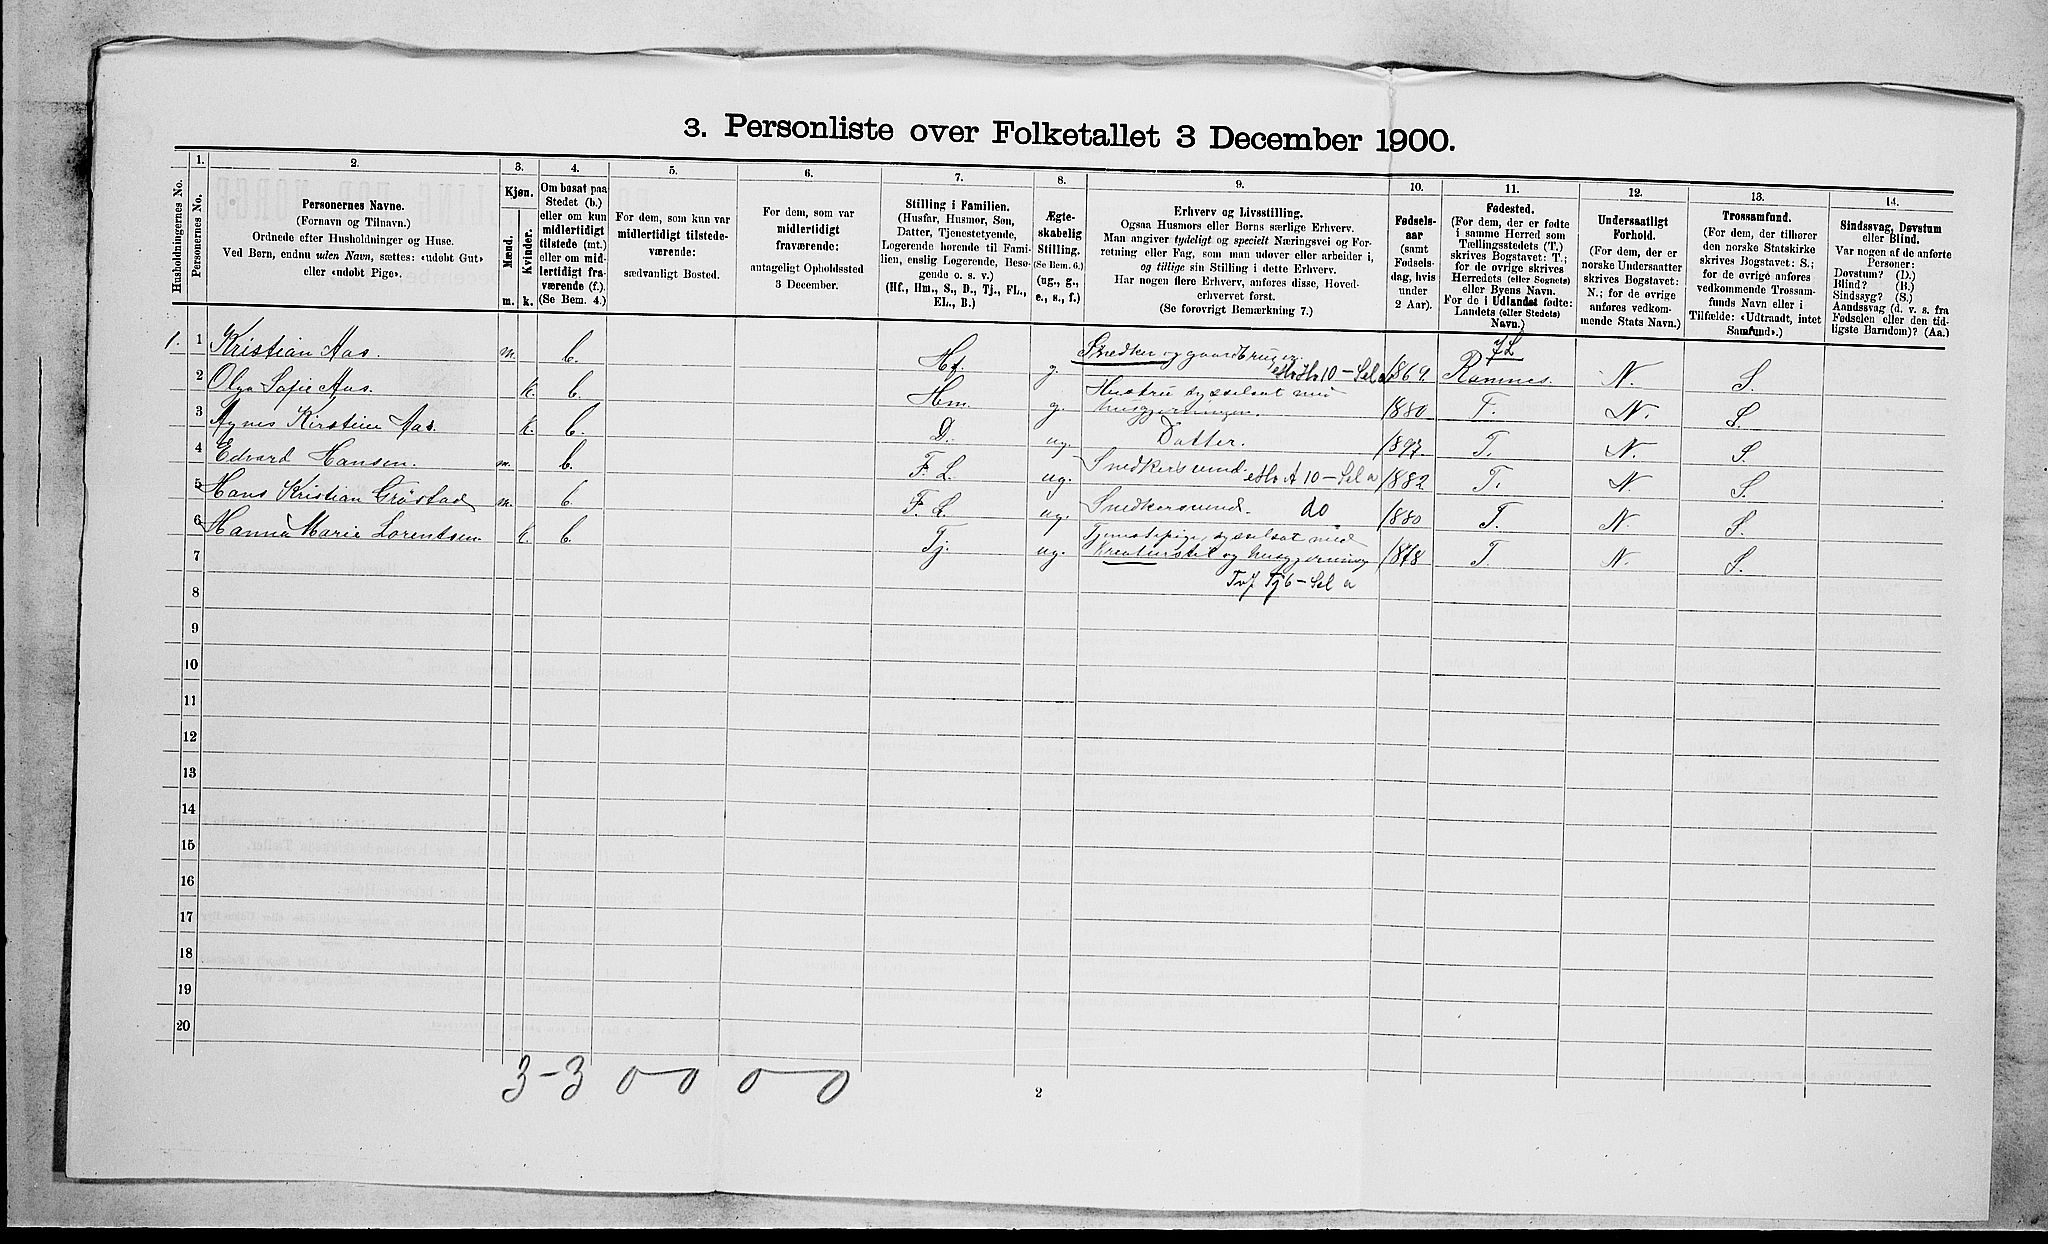 3. Personliste over Folketallet 3 December 1900.
1. 2. 3. 4. 5. 6. 7. 8. 9. 10. 11. 12. 13. 14.
Husholdningernes No.
Personernes No.
Personernes Navne.
(Fornavn og Tilnavn.)
Ordnede efter Husholdninger og Huse.
Ved Børn, endnu uden Navn, sættes: «udøbt Gut»
eller «udøbt Pige».
Kjøn.
Mænd.
Kvinder.
m. k.
Om bosat paa
Stedet (b.)
eller om kun
midlertidigt
tilstede (mt.)
eller om mid-
lertidigt fra-
værende (f.).
(Se Bem. 4.)
For dem, som kun var
midlertidigt tilstede-
værende:
sædvanligt Bosted.
For dem, som var
midlertidigt
fraværende:
antageligt Opholdssted
3 December.
Stilling i Familien.
(Husfar, Husmor, Søn,
Datter, Tjenestetyende,
Logerende hørende til Fami-
lien, enslig Logerende, Besø-
gende o. s. v.)
(Hf., Hm., S., D., Tj., FL.,
EL., B.)
Ægte-
skabelig
Stilling.
(Se Bem. 6.)
(ug., g.,
e., s., f.)
Erhverv og Livsstilling.
Ogsaa Husmors eller Børns særlige Erhverv.
Man angiver tydeligt og specielt Næringsvei og For-
retning eller Fag, som man udøver eller arbeider i,
og tillige sin Stilling i dette Erhverv.
Har nogen flere Erhverv, anføres disse, Hoved-
erhvervet først.
(Se forøvrigt Bemærkning 7.)
Fødsels-
aar
(samt
Fødsels-
dag, hvis
under
2 Aar).
Fødested.
(For dem, der er fødte
i samme Herred som
Tællingsstedets (T.)
skrives Bogstavet: T.;
for de øvrige skrives
Herredets (eller Sognets)
eller Byens Navn.
For de i Udlandet fødte:
Landets (eller Stedets)
Navn.)
Undersaatligt
Forhold.
(For dem, der er
norske Undersaatter
skrives Bogstavet:
N.; for de øvrige
anføres vedkom-
mende Stats Navn.)
Trossamfund.
(For dem, der tilhører
den norske Statskirke
skrives Bogstavet: S.;
for de øvrige anføres
vedkommende Trossam-
funds Navn eller i
Tilfælde: «Udtraadt, intet
Samfund».)
Sindssvag, Døvstum
eller Blind.
Var nogen af de anførte
Personer:
Døvstum? (D.)
Blind? (B.)
Sindssyg? (S.)
Aandssvag (d. v. s. fra
Fødselen eller den tid-
ligste Barndom)? (Aa.)
1. 1 Kristian Aas. m. b. Hf. g. Snedker og gaardbruger 10 - Sel a 1869 Ramnes. N. S.
2 Olga Sofie Aas. k. b. Hm. g. Hustru sysselsat med
husgjerningen. 1880 T. N. S.
3 Agnes Kirstine Aas. k. b. D. ug. Datter. 1897 T. N. S.
4 Edvard Hansen. m. b. F. L. ug. Snedkersvend. 10 - Sel a 1882 T. N. S.
5 Hans Kristian Gröstad m. b. F. L. ug. Snedkersvend. do 1880 T. N. S.
6 Hanna Marie Lorentsen k. b. Tj. ug. Tjenestepige, sysselsat med
Kreaturstel og husgjerning 1878 T. N. S.
7
Tj 6 - Sel a
8
9
10
11
12
13
14
15
16
17
18
19
20
3-3 0 0 0 0
2